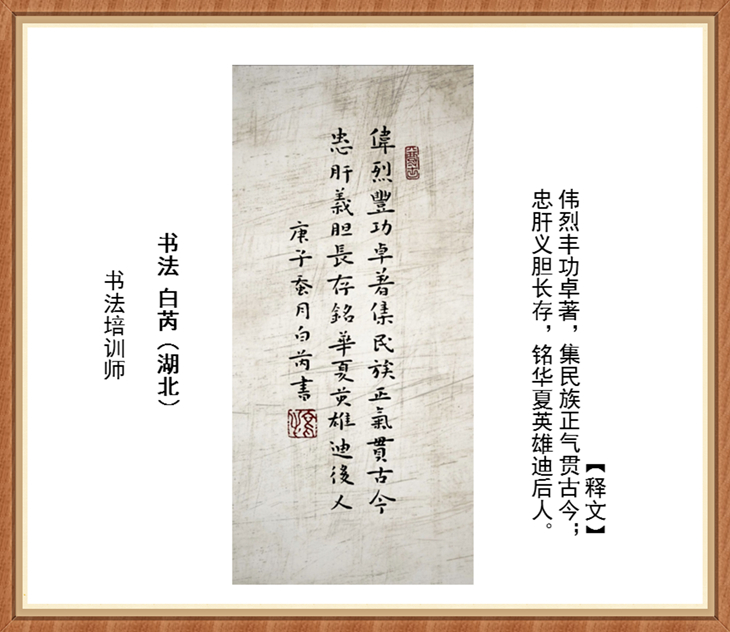 【释文】
伟烈丰功卓著，集民族正气贯古今；
忠肝义胆长存，铭华夏英雄迪后人。
偉烈豐功卓著集民族正氣貫古今
忠肝義胆長存銘華夏英雄迪後人
庚子蚕月白芮書
书法 白芮（湖北）
书法培训师